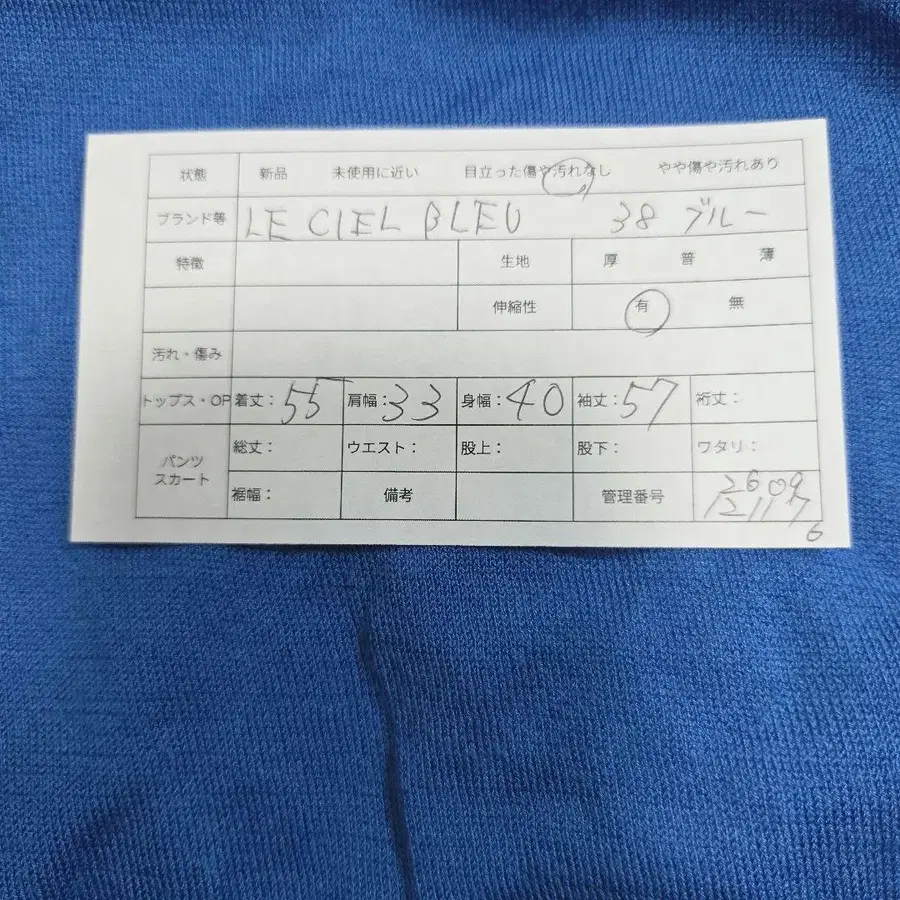 状態 新品 未使用に近い 目立った傷や汚れなし やや傷や汚れあり
ブランド等 LE CIEL BLEU 38 ブルー
特徴 生地 厚 普 薄
伸縮性 有 無
汚れ・傷み
トップス・OP 着丈：55 肩幅：33 身幅：40 袖丈：57 裄丈：
パンツ スカート 総丈： ウエスト： 股上： 股下： ワタリ：
裾幅： 備考 管理番号